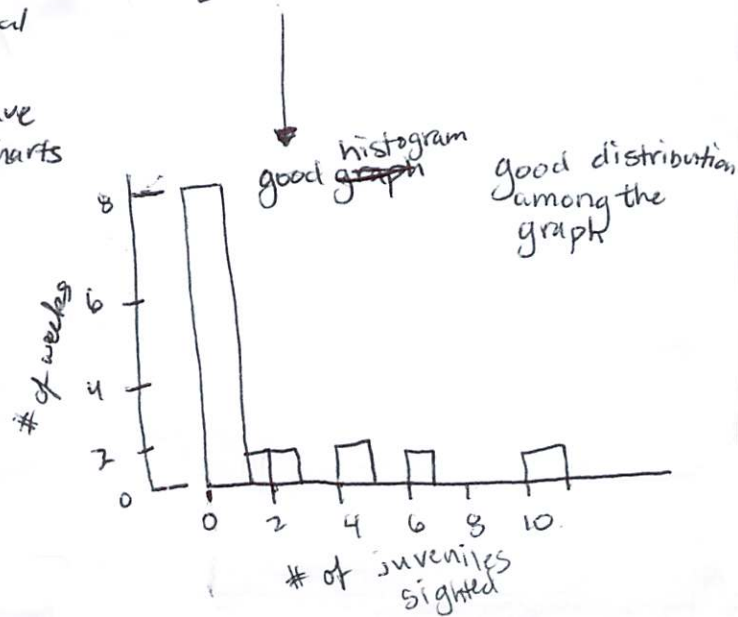 al
ve
harts
good histogram
good distribution
among the
graph
8
6
4
2
0
# of weeks
0 2 4 6 8 10
# of juveniles
sighted